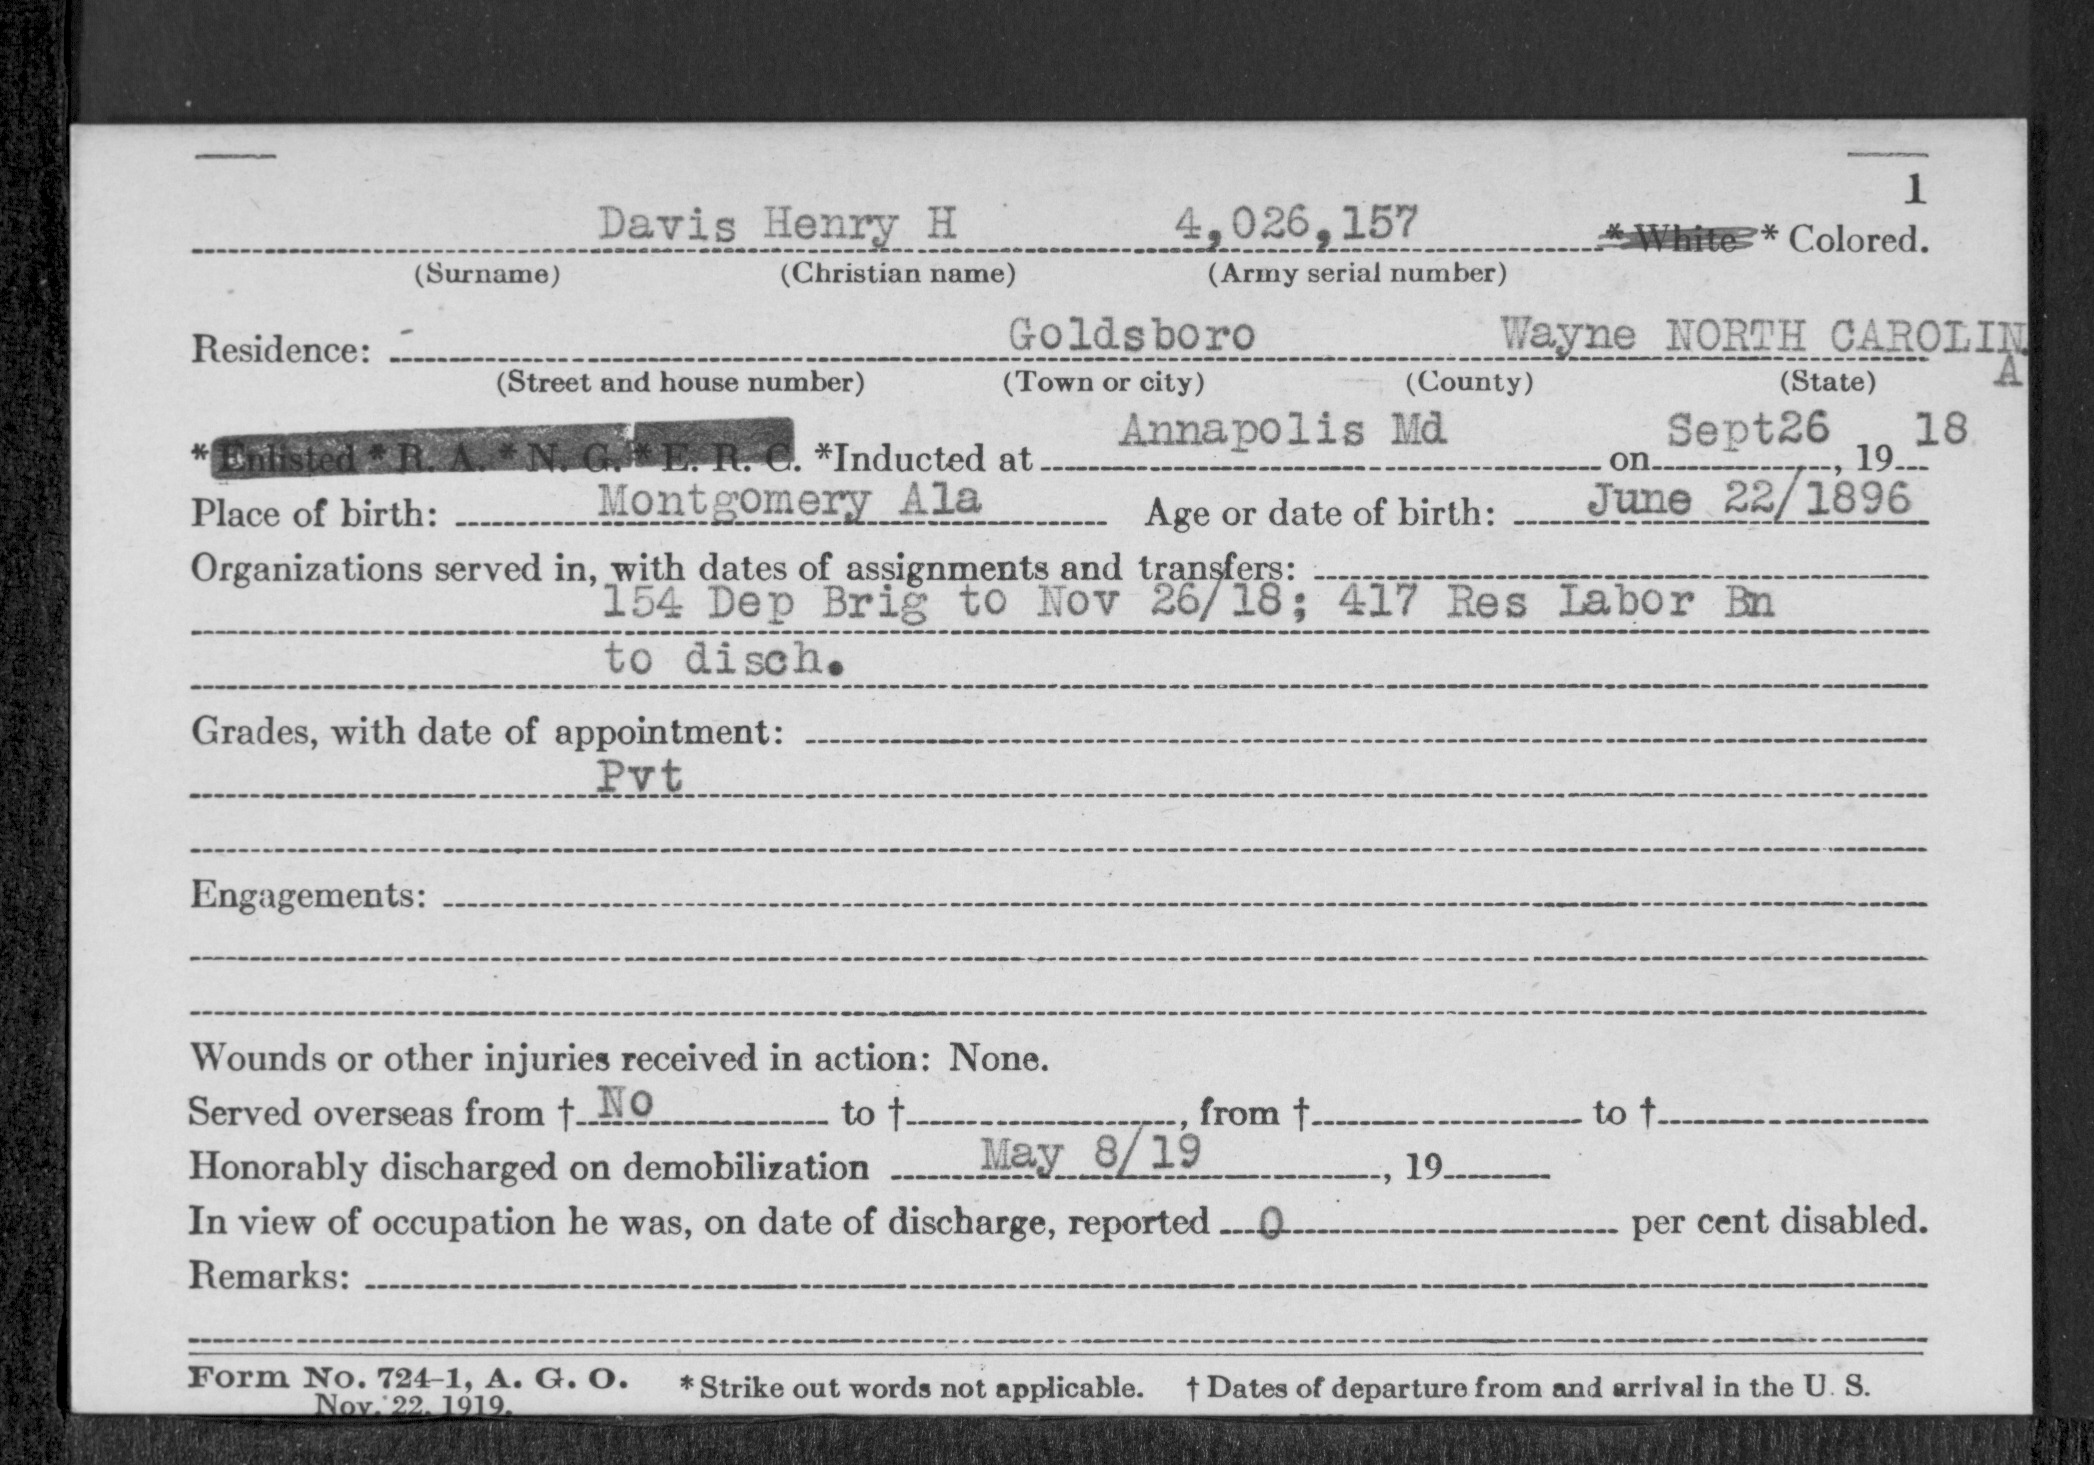 1
Davis Henry H 4,026,157 * White * Colored.
(Surname) (Christian name) (Army serial number)
Residence: Goldsboro Wayne NORTH CAROLINA
(Street and house number) (Town or city) (County) (State)
* Enlisted * R. A. * N. G. * E. R. C. *Inducted at Annapolis Md on Sept26, 1918
Place of birth: Montgomery Ala Age or date of birth: June 22/1896
Organizations served in, with dates of assignments and transfers:
154 Dep Brig to Nov 26/18; 417 Res Labor Bn
to disch.
Grades, with date of appointment:
Pvt
Engagements:
Wounds or other injuries received in action: None.
Served overseas from † No to †, from † to †
Honorably discharged on demobilization May 8/19, 19
In view of occupation he was, on date of discharge, reported 0 per cent disabled.
Remarks:
Form No. 724-1, A. G. O. * Strike out words not applicable. † Dates of departure from and arrival in the U. S.
Nov. 22, 1919.